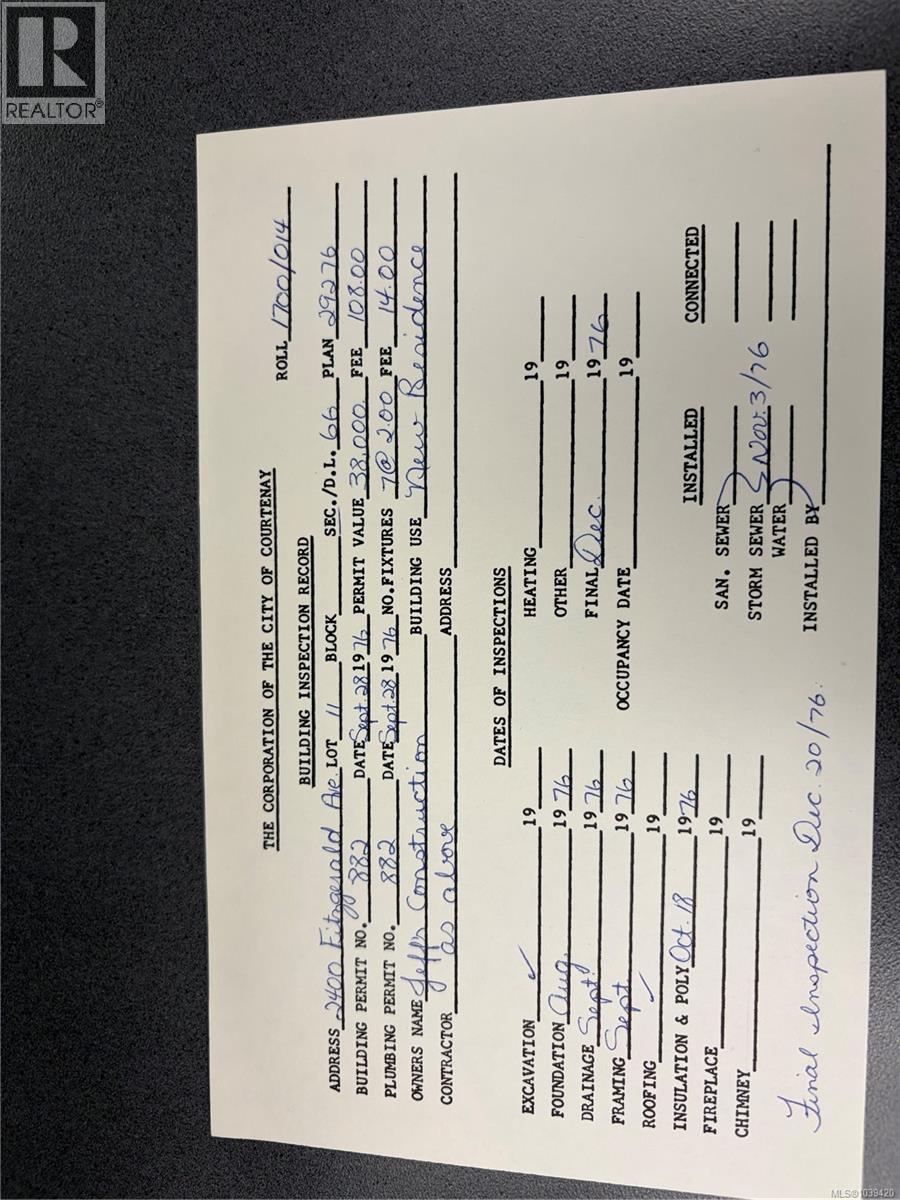 REALTOR®
THE CORPORATION OF THE CITY OF COURTENAY
ROLL 1700/014
BUILDING INSPECTION RECORD
ADDRESS 2400 Fitzgerald Ave. LOT 11 BLOCK SEC./D.L. 66 PLAN 29276
BUILDING PERMIT NO. 882 DATE Sept. 28 19 76 PERMIT VALUE 38,000. FEE 108.00
PLUMBING PERMIT NO. 882 DATE Sept. 28 19 76 NO. FIXTURES 7 @ 2.00 FEE 14.00
OWNERS NAME Jeff's Construction BUILDING USE New Residence
CONTRACTOR as above ADDRESS
DATES OF INSPECTIONS
EXCAVATION ✓ 19 HEATING 19
FOUNDATION Aug. 19 76 OTHER 19
DRAINAGE Sept. 19 76 FINAL Dec. 19 76
FRAMING Sept. 19 76 OCCUPANCY DATE 19
ROOFING ✓ 19
INSULATION & POLY Oct. 18 19 76 INSTALLED CONNECTED
FIREPLACE 19 SAN. SEWER
CHIMNEY 19 STORM SEWER Nov. 3/76
WATER
Final Inspection Dec. 20/76. INSTALLED BY
MLS®1039420